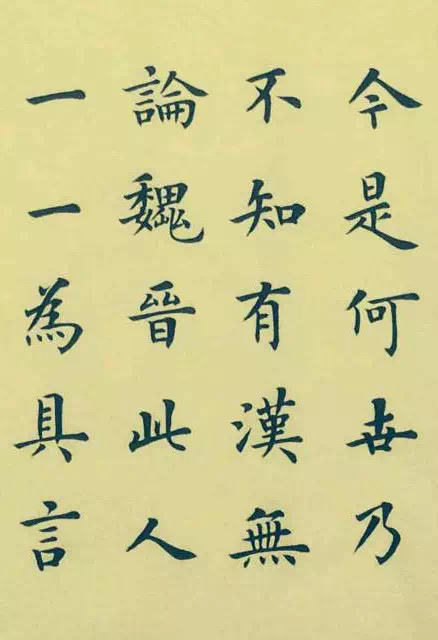 今是何世乃
不知有漢無
論魏晉此人
一一為具言